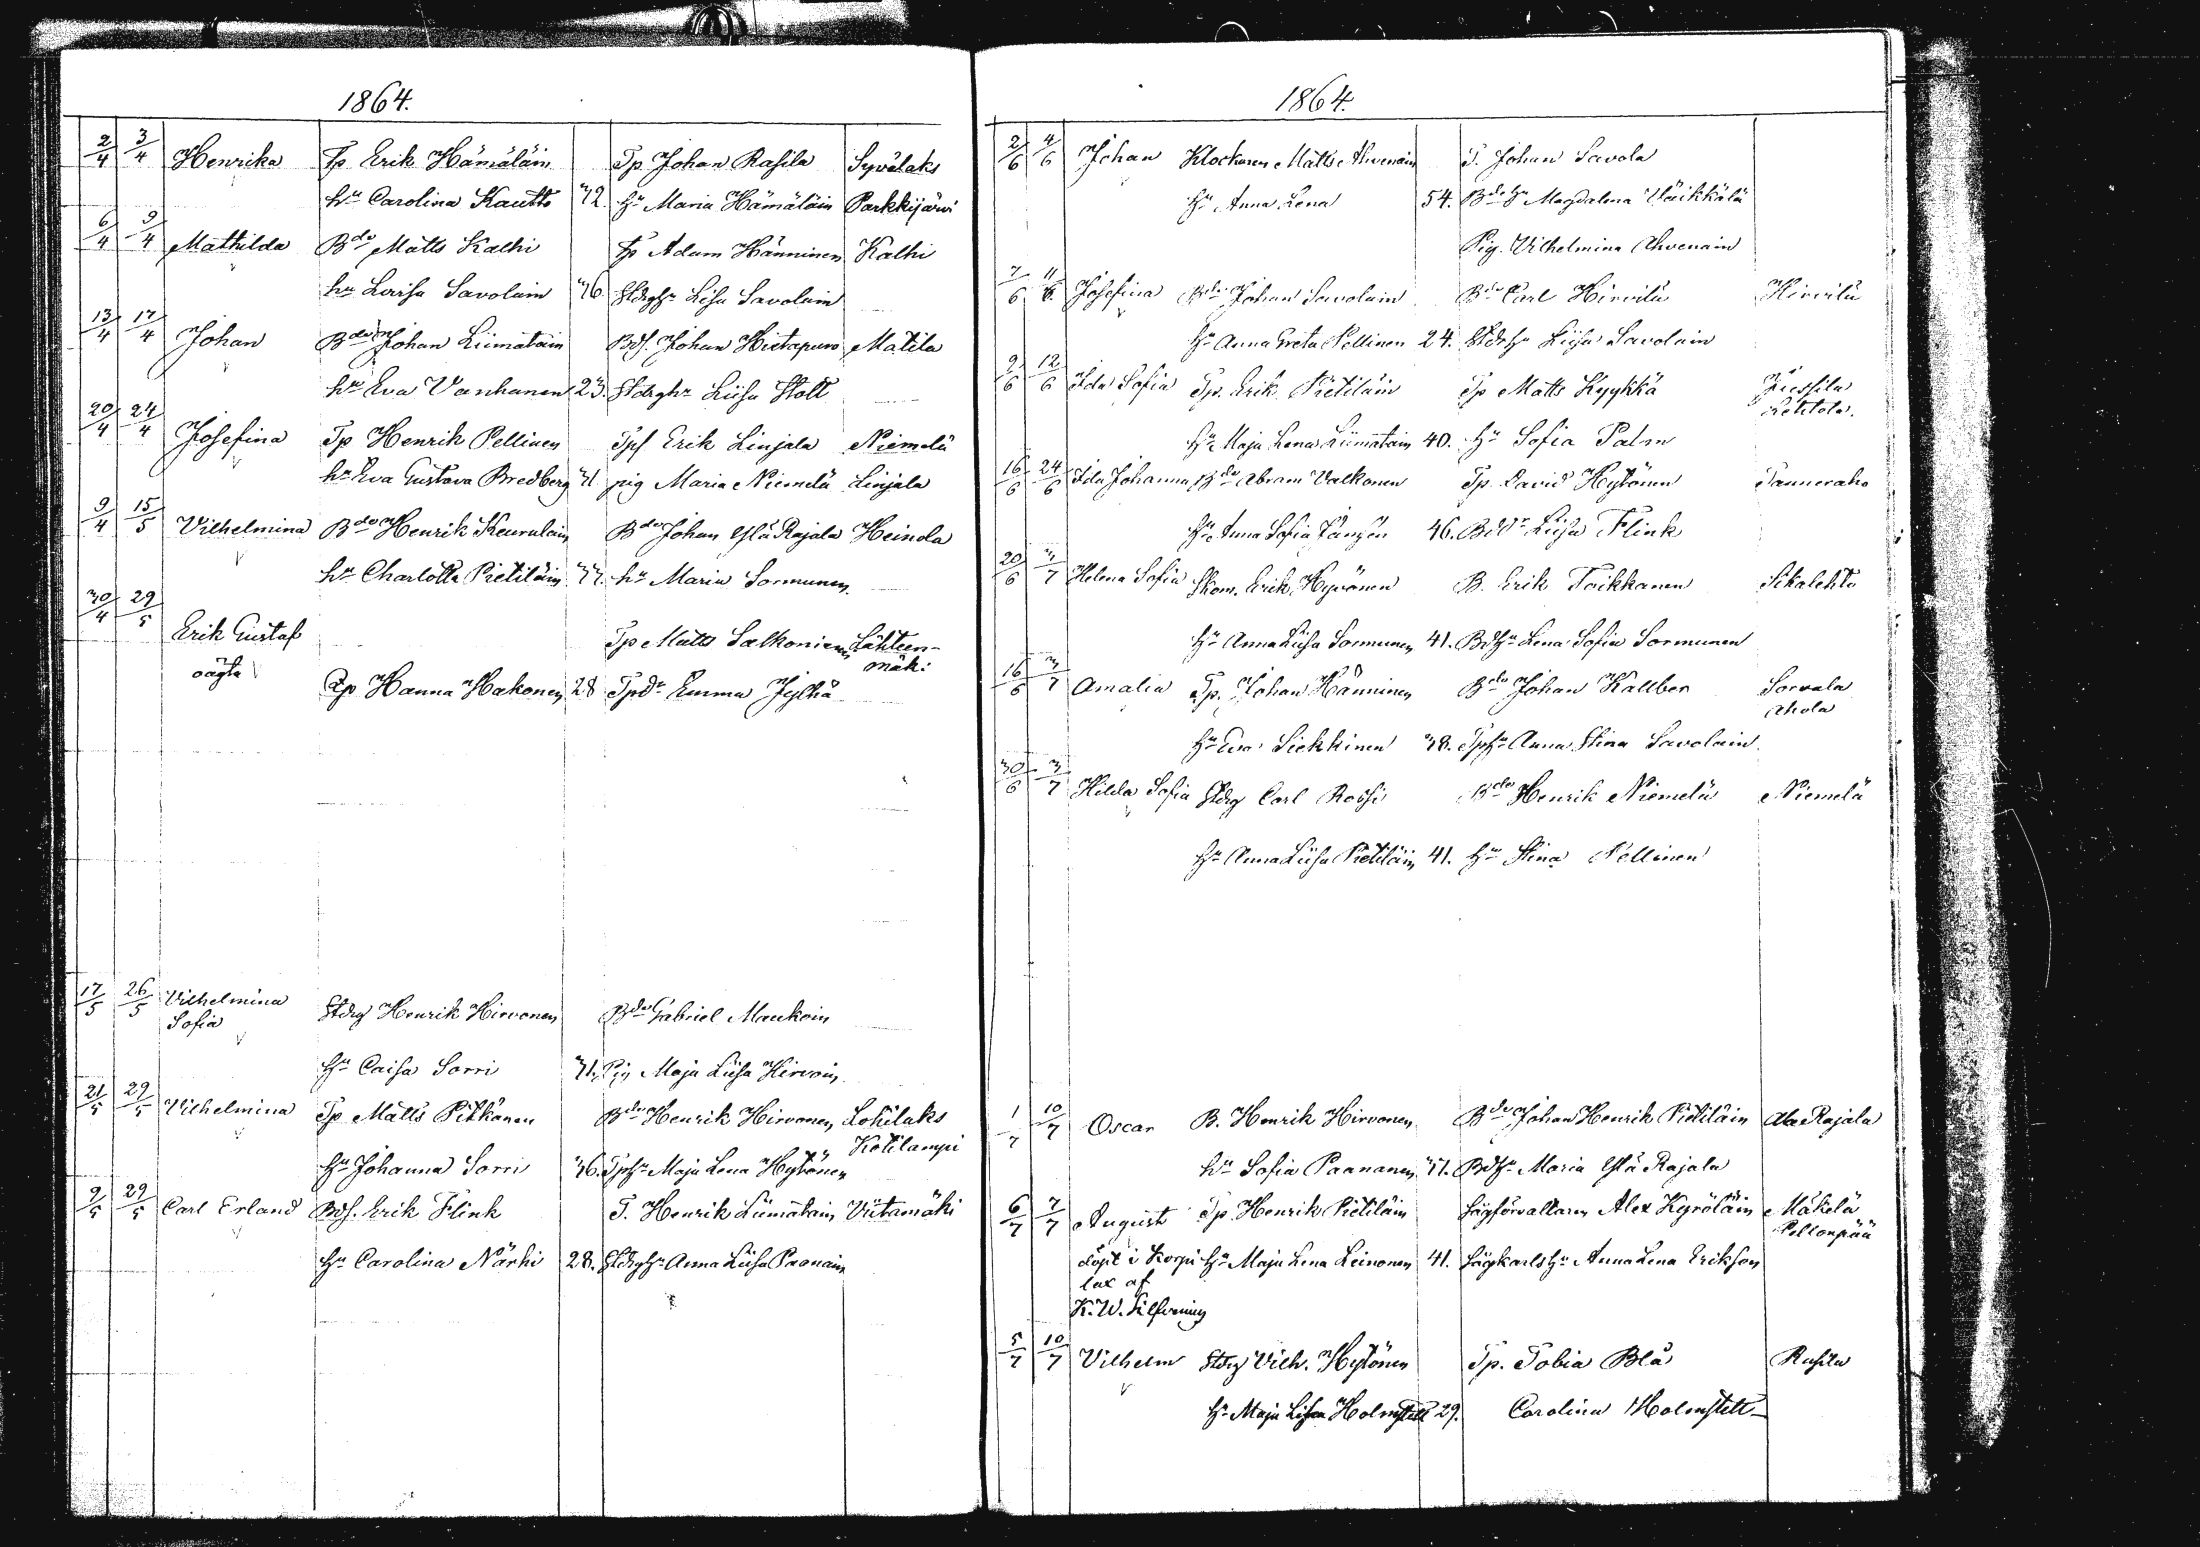 1864.
2/4 3/4 Henrika Tp Erik Hämäläin Tp Johan Rasila Syvälaks
hu Carolina Kautto 32. hu Maria Hämäläin Parkkijärvi
6/4 9/4 Mathilda Bde Matts Kalhi Tp Adam Hänninen Kalhi
hu Lovisa Savolain 36 Stdrghr Lisa Savolain
13/4 17/4 Johan Bde Johan Liimatain Bds. Johan Hietapuro Matila
hu Eva Vanhanen 23. Stdrghr Liisa Stolt
20/4 24/4 Josefina Tp Henrik Pellinen Tps Erik Linjala Niemelä
hu Eva Gustava Bredberg 31 pig Maria Niemelä Linjala
9/4 15/5 Vilhelmina Bde Henrik Keurulain Bde Johan Ylä Rajala Heinola
hu Charlotta Pietiläin 37. hu Maria Sormunen
30/4 29/5
Erik Gustaf Tp Matts Salkonien Lähteen-
oägta mäki
Hanna Hakonen 28 Tpdr Emma Jylhä
17/5 26/5 Vilhelmina Stdrg Henrik Hirvonen Bde Gabriel Maukoin
Sofia
hu Caisa Sorri 31. Pig Maja Liisa Hirvoin
21/5 29/5 Vilhelmina Tp Matts Pitkänen Bde Henrik Hirvonen Lohilaks
Kotilampi
hu Johanna Sorri 36. Tphu Maja Lena Hytönen
9/5 29/5 Carl Erland Bds. Erik Flink T. Henrik Liimatain Viitamäki
hu Carolina Närhi 28. Stdrghu Anna Liisa Paonain
1864.
2/6 4/6 Johan Klockaren Matts Ahvenain T. Johan Savola
hu Anna Lena 54. Bde hu Magdalena Väikkälä
Pig. Vilhelmina Ahvenain
7/6 11/6 Josefina Bde Johan Savolain Bde Carl Hirvilä Hirvilä
hu Anna Greta Pellinen 24. Stdrhu Liisa Savolain
9/6 12/6 Ida Sofia Tp. Erik Pietiläin Tp Matts Kyykkä
Lehtola.
hu Maja Lena Liimatain 40. hu Sofia Palm
16/6 24/6 Ida Johanna Bde Abram Valkonen Tp. David Hytönen Tanneraho
hu Anna Sofia 46. Bddr Liisa Flink
20/6 3/7 Helena Sofia Skom. Erik Hyvönen B. Erik Toikkanen Sikalehto
hu Anna Liisa Sormunen 41. Bdhu Lena Sofia Sormunen
16/6 3/7 Amalia Tp. Johan Hänninen Bde Johan Kallber Sorvala
Ahola
hu Eva Siekkinen 38. Tphu Anna Stina Savolain
30/6 3/7 Hilda Sofia Stdrg Carl Rossi Bde Henrik Niemelä Niemelä
hu Anna Liisa Pietiläin 41. hu Stina Pellinen
1/7 10/7 Oscar B. Henrik Hirvonen Bde Johan Henrik Pietiläin Ala Rajala
hu Sofia Paananen 37. Bdhu Maria Ylä Rajala
6/7 7/7 August Tp. Henrik Pietiläin Sågförvaltaren Alex Kyröläin Mäkelä
Pellonpää
döpt i Korpi hu Maja Lena Leinonen 41. Sågkarls hu Anna Lena Erikson
lax af
K. W. Silfvening
5/7 10/7 Vilhelm Stdrg Vilh. Hytönen Tp. Tobia Blå Rasila
hu Maja Lisa Holmstett 29. Carolina Holmstett